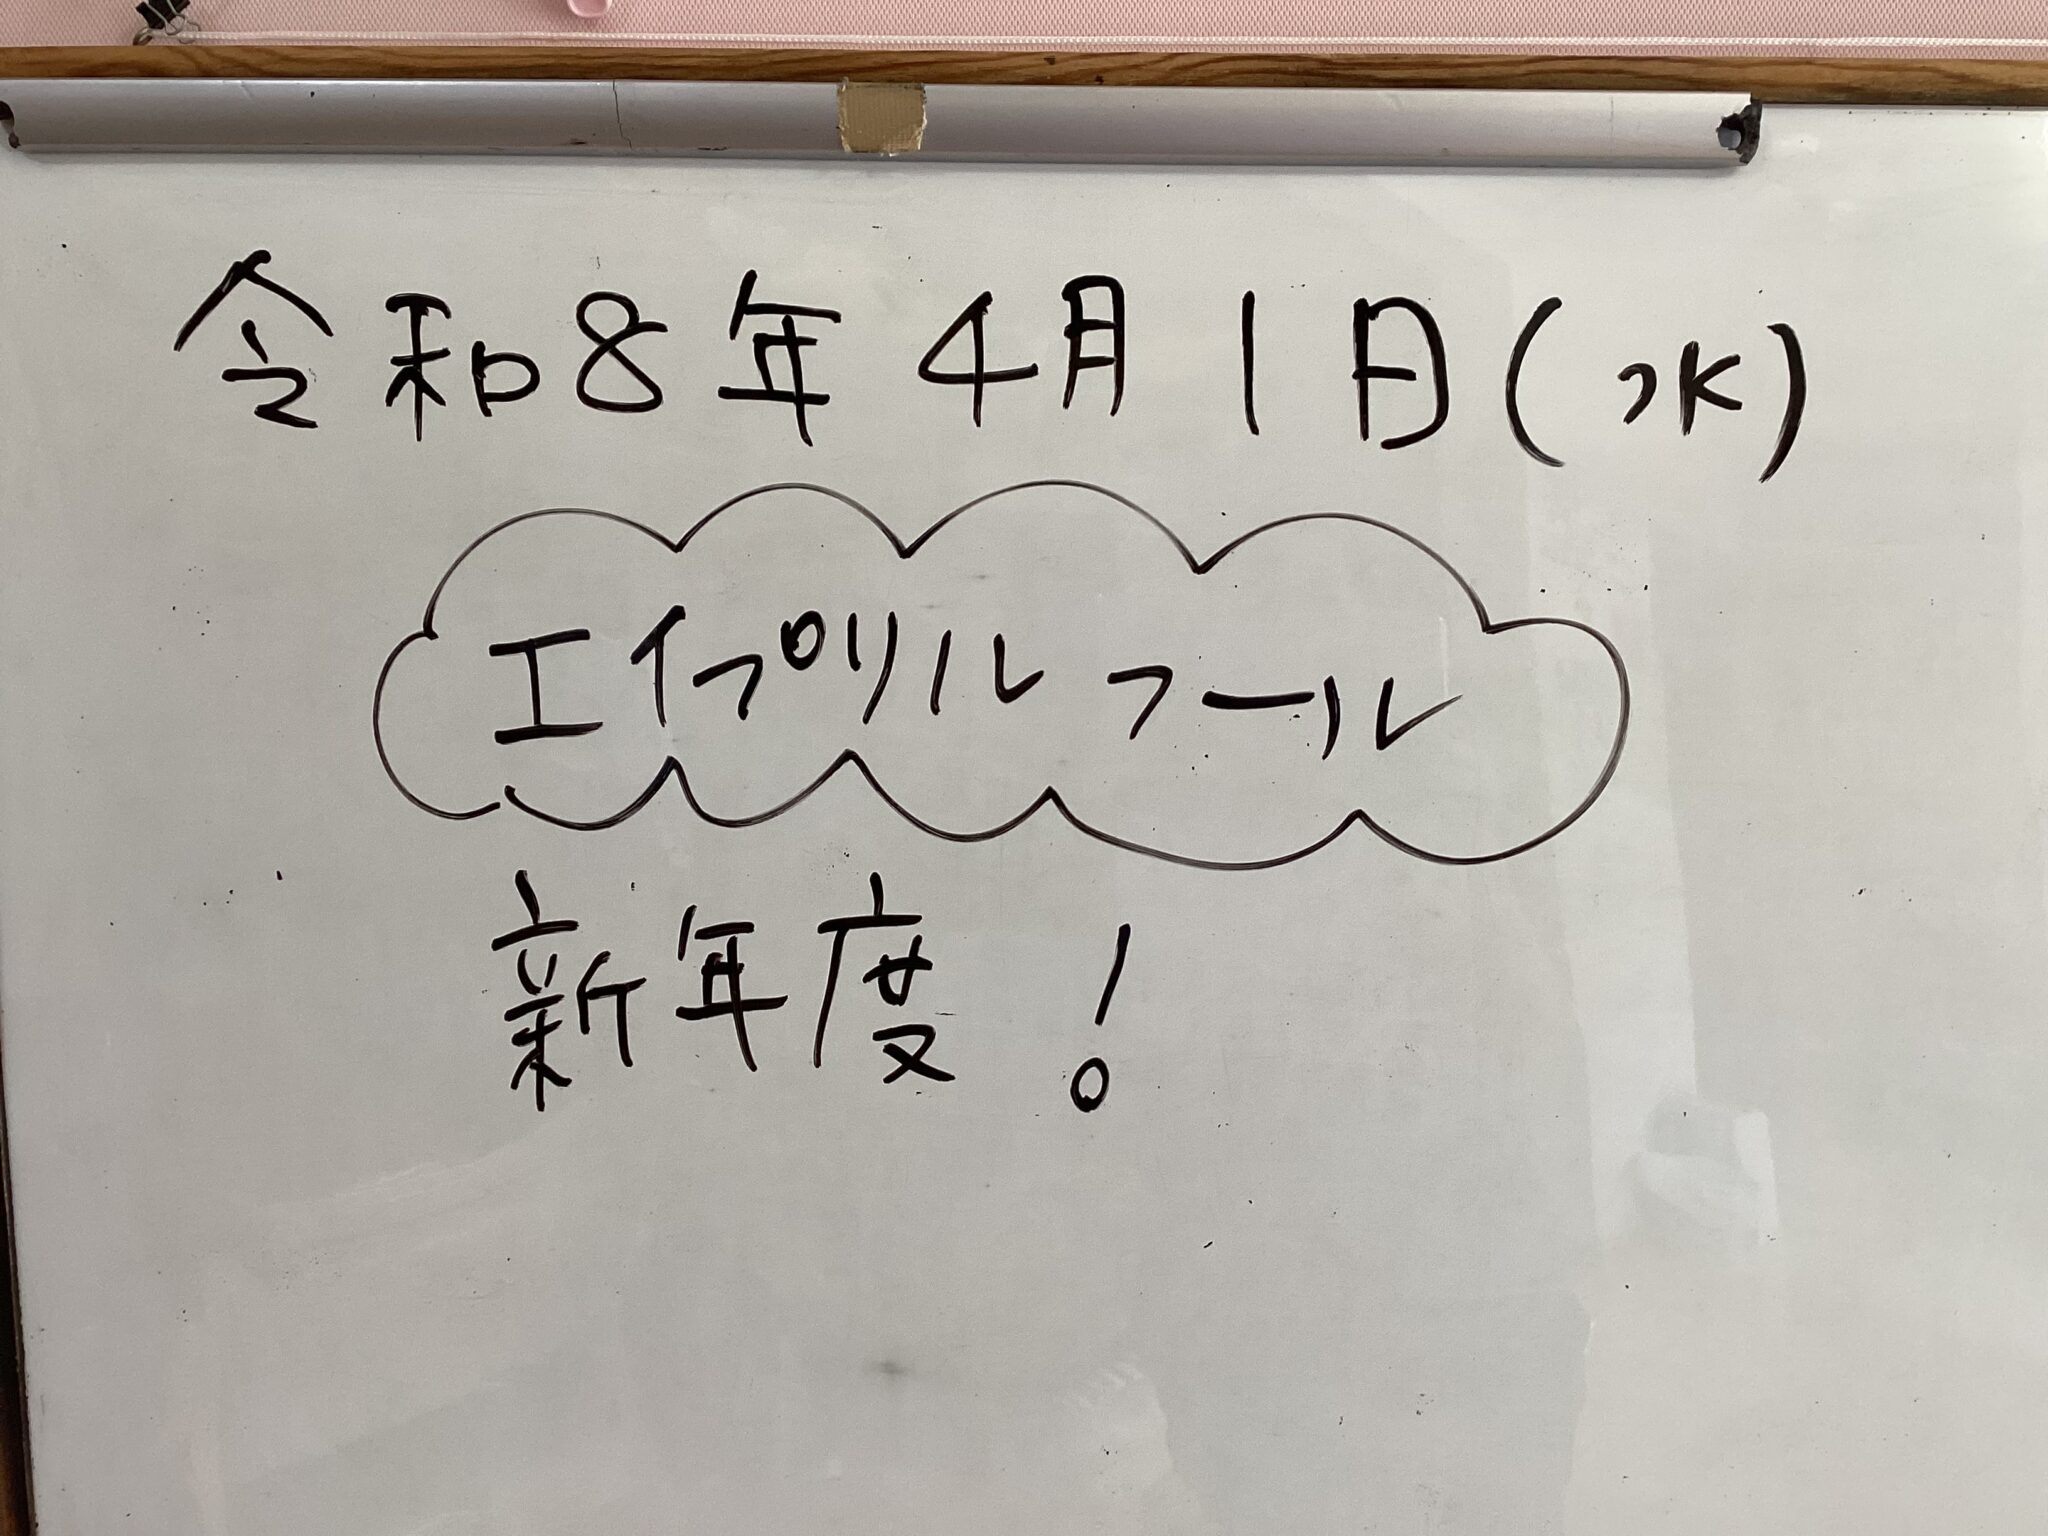 令和8年4月1日(水)
エイプリルフール
新年度!